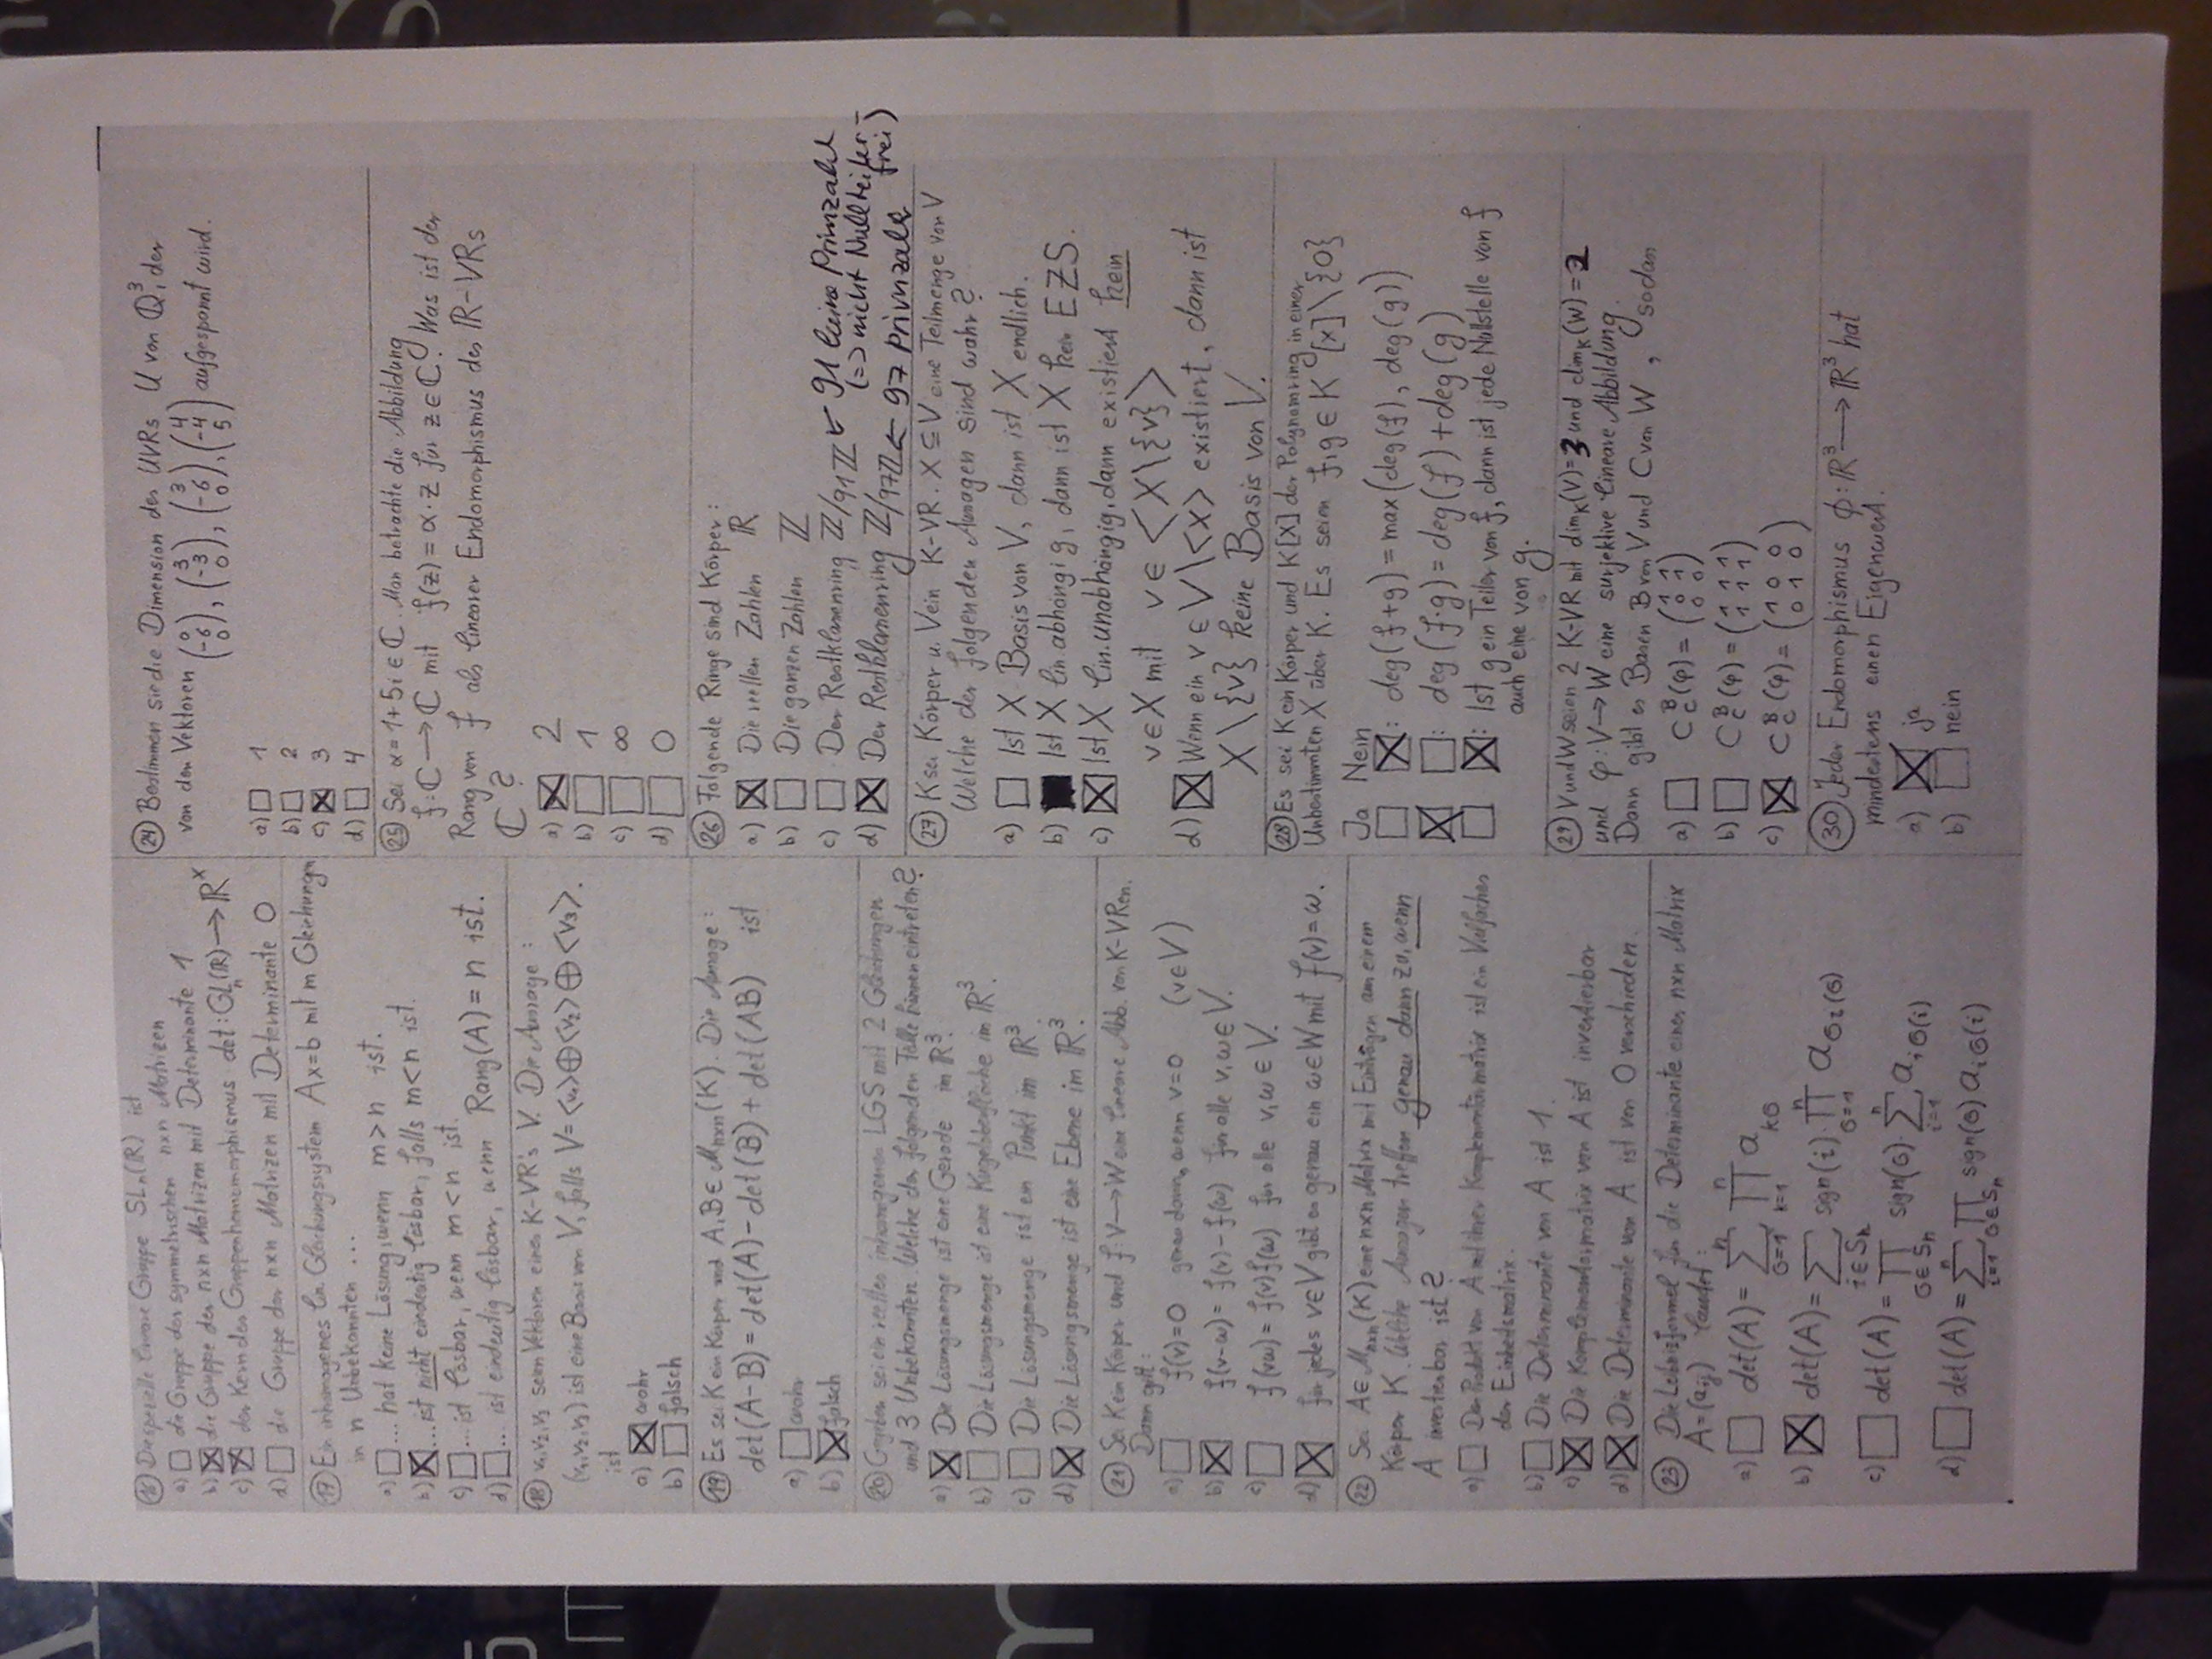 ⑯ Die spezielle lineare Gruppe SLₙ(ℝ) ist
a) □ die Gruppe der symmetrischen nxn Matrizen
b) ☒ die Gruppe der nxn Matrizen mit Determinante 1
c) ☒ der Kern des Gruppenhomomorphismus det: GLₙ(ℝ) → ℝˣ
d) □ die Gruppe der nxn Matrizen mit Determinante 0
⑰ Ein inhomogenes lin. Gleichungssystem Ax=b mit m Gleichungen
in n Unbekannten ...
a) □ ... hat keine Lösung, wenn m > n ist.
b) ☒ ... ist nicht eindeutig lösbar, falls m < n ist.
c) □ ... ist lösbar, wenn m < n ist.
d) □ ... ist eindeutig lösbar, wenn Rang(A) = n ist.
⑱ v₁,v₂,v₃ seien Vektoren eines K-VR's V. Die Aussage:
(v₁,v₂,v₃) ist eine Basis von V, falls V = <v₁> ⊕ <v₂> ⊕ <v₃>.
ist
a) ☒ wahr
b) □ falsch
⑲ Es sei K ein Körper und A,B ∈ Mₙₓₙ(K). Die Aussage:
det(A-B) = det(A) - det(B) + det(AB) ist
a) □ wahr
b) ☒ falsch
⑳ Gegeben sei ein reelles inhomogenes LGS mit 2 Gleichungen
und 3 Unbekannten. Welche der folgenden Fälle können eintreten?
a) ☒ Die Lösungsmenge ist eine Gerade im ℝ³.
b) □ Die Lösungsmenge ist eine Kugeloberfläche im ℝ³.
c) □ Die Lösungsmenge ist ein Punkt im ℝ³.
d) ☒ Die Lösungsmenge ist eine Ebene im ℝ³.
㉑ Sei K ein Körper und f: V → W eine lineare Abb. von K-VRen.
Dann gilt:
a) □ f(v)=0 genau dann, wenn v=0 (v∈V)
b) ☒ f(v-w) = f(v) - f(w) für alle v,w ∈ V.
c) □ f(vw) = f(v)f(w) für alle v,w ∈ V.
d) ☒ für jedes v∈V gibt es genau ein w∈W mit f(v) = w.
㉒ Sei A∈Mₙₓₙ(K) eine nxn Matrix mit Einträgen aus einem
Körper K. Welche Aussagen treffen genau dann zu, wenn
A invertierbar ist?
a) □ Das Produkt von A mit ihrer Komplementärmatrix ist ein Vielfaches
der Einheitsmatrix.
b) □ Die Determinante von A ist 1.
c) ☒ Die Komplementärmatrix von A ist invertierbar
d) ☒ Die Determinante von A ist von 0 verschieden.
㉓ Die Leibnizformel für die Determinante einer nxn Matrix
A=(aᵢⱼ) lautet:
a) □ det(A) = ∑_{σ=1}^{n} ∏_{k=1}^{n} a_{kσ}
b) ☒ det(A) = ∑_{i∈Sₙ} sign(i) · ∏_{σ=1}^{n} a_{σi(σ)}
c) □ det(A) = ∏_{σ∈Sₙ} sign(σ) · ∑_{i=1}^{n} a_{iσ(i)}
d) □ det(A) = ∑_{i=1}^{n} ∏_{σ∈Sₙ} sign(σ) a_{iσ(i)}
㉔ Bestimmen sie die Dimension des UVRs U von ℚ³, der
von den Vektoren (0 -6 0), (3 -3 0), (3 -6 0), (4 -4 5) aufgespannt wird.
a) □ 1
b) □ 2
c) ☒ 3
d) □ 4
㉕ Sei α = 1+5i ∈ ℂ. Man betrachte die Abbildung
f: ℂ → ℂ mit f(z) = α·z für z∈ℂ. Was ist der
Rang von f als linearer Endomorphismus des ℝ-VRs
ℂ?
a) ☒ 2
b) □ 1
c) □ ∞
d) □ 0
㉖ Folgende Ringe sind Körper:
a) ☒ Die reellen Zahlen ℝ
b) □ Die ganzen Zahlen ℤ
c) □ Der Restklassenring ℤ/91ℤ ← 91 keine Primzahl
(=> nicht Nullteiler-
frei)
d) ☒ Der Restklassenring ℤ/97ℤ ← 97 Primzahl
㉗ K sei Körper u. V ein K-VR. X ⊆ V eine Teilmenge von V
Welche der folgenden Aussagen sind wahr?
a) □ Ist X Basis von V, dann ist X endlich.
b) ■ Ist X lin abhängig, dann ist X kein EZS.
c) ☒ Ist X lin.unabhängig, dann existiert kein
v∈X mit v ∈ <X\{v}>
d) ☒ Wenn ein v ∈ V\<X> existiert, dann ist
X\{v} keine Basis von V.
㉘ Es sei K ein Körper und K[X] der Polynomring in einer
Unbestimmten X über K. Es seien f,g ∈ K[x]\{0}
Ja Nein
□ ☒: deg(f+g) = max(deg(f), deg(g))
☒ □: deg(f·g) = deg(f) + deg(g)
□ ☒: Ist g ein Teiler von f, dann ist jede Nullstelle von f
auch eine von g.
㉙ V und W seien 2 K-VR mit dimₖ(V)=3 und dimₖ(W)=2
und φ: V→W eine surjektive lineare Abbildung.
Dann gibt es Basen B von V und C von W, sodass
a) □ C_C^B(φ) = (0 1 1 / 0 0 0)
b) □ C_C^B(φ) = (1 1 1 / 1 1 1)
c) ☒ C_C^B(φ) = (1 0 0 / 0 1 0)
㉚ Jeder Endomorphismus ϕ: ℝ³ → ℝ³ hat
mindestens einen Eigenwert.
a) ☒ ja
b) □ nein